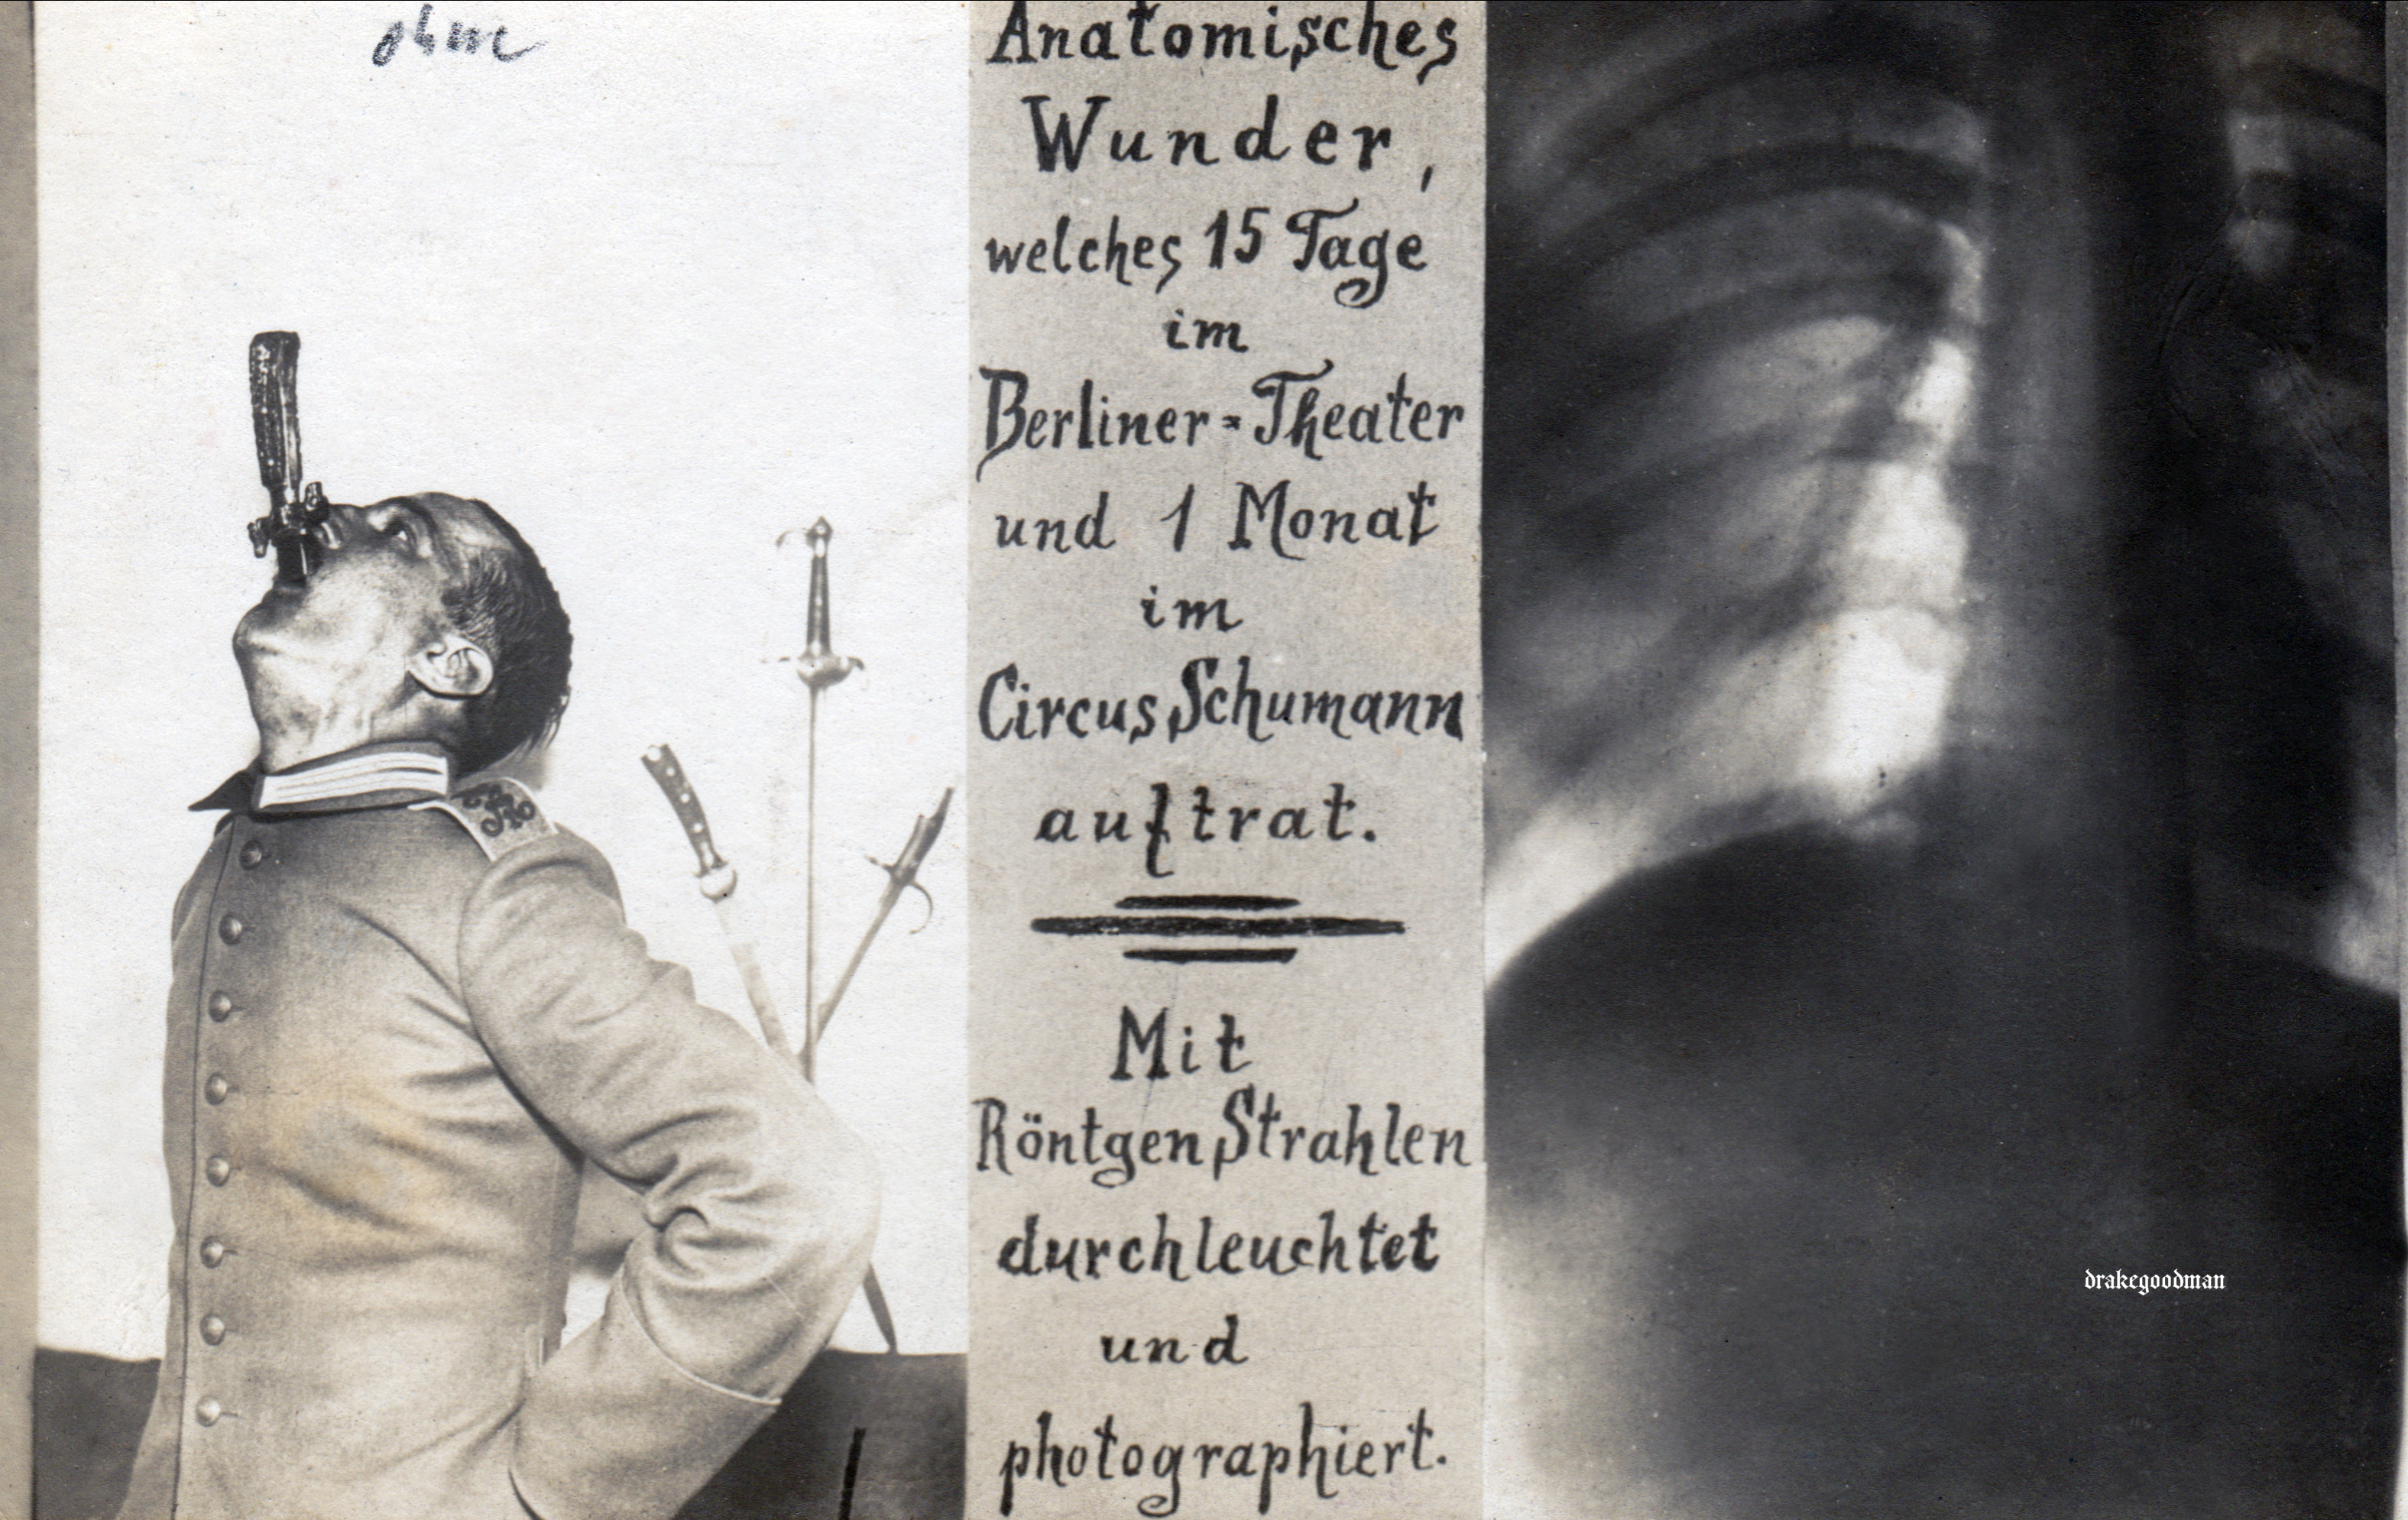 ohne
Anatomisches
Wunder,
welches 15 Tage
im
Berliner=Theater
und 1 Monat
im
Circus Schumann
auftrat.
Mit
Röntgen Strahlen
durchleuchtet
und
photographiert.
drakegoodman